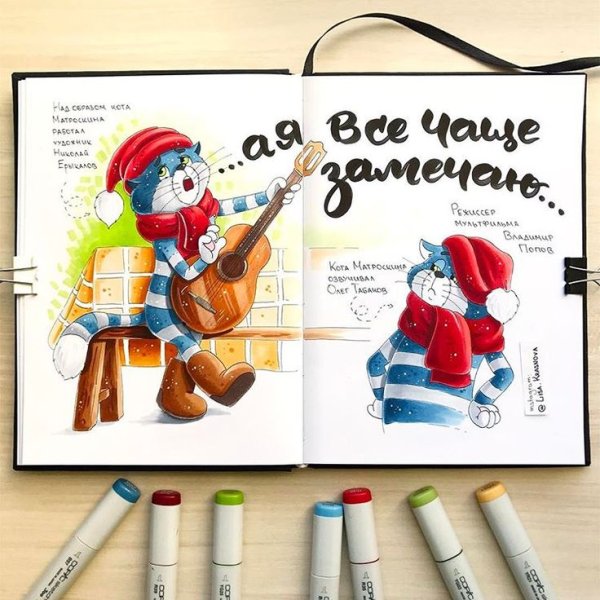 Над образом кота
Матроскина
работал
художник
Николай
Ерыкалов
...ая все чаще
замечаю...
Режиссер
мультфильма
Владимир
Попов
Кота Матроскина
озвучивал
Олег Табаков
instagram
@ Liisa.Krasnova